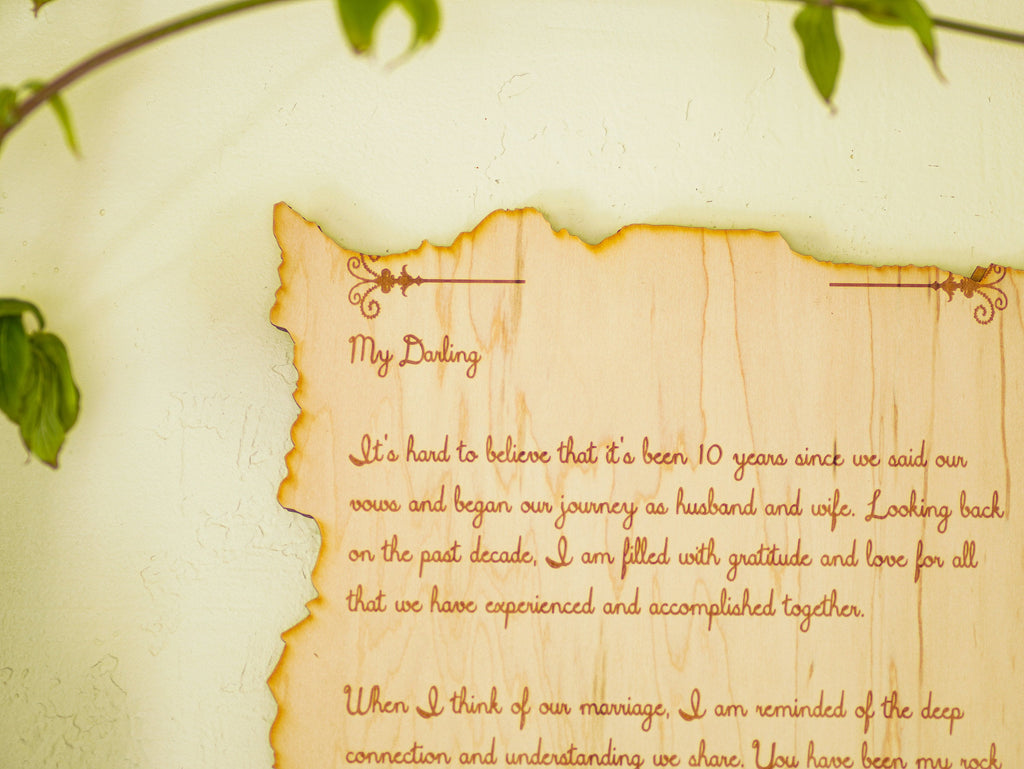 My Darling
It's hard to believe that it's been 10 years since we said our
vows and began our journey as husband and wife. Looking back
on the past decade, I am filled with gratitude and love for all
that we have experienced and accomplished together.
When I think of our marriage, I am reminded of the deep
connection and understanding we share. You have been my rock